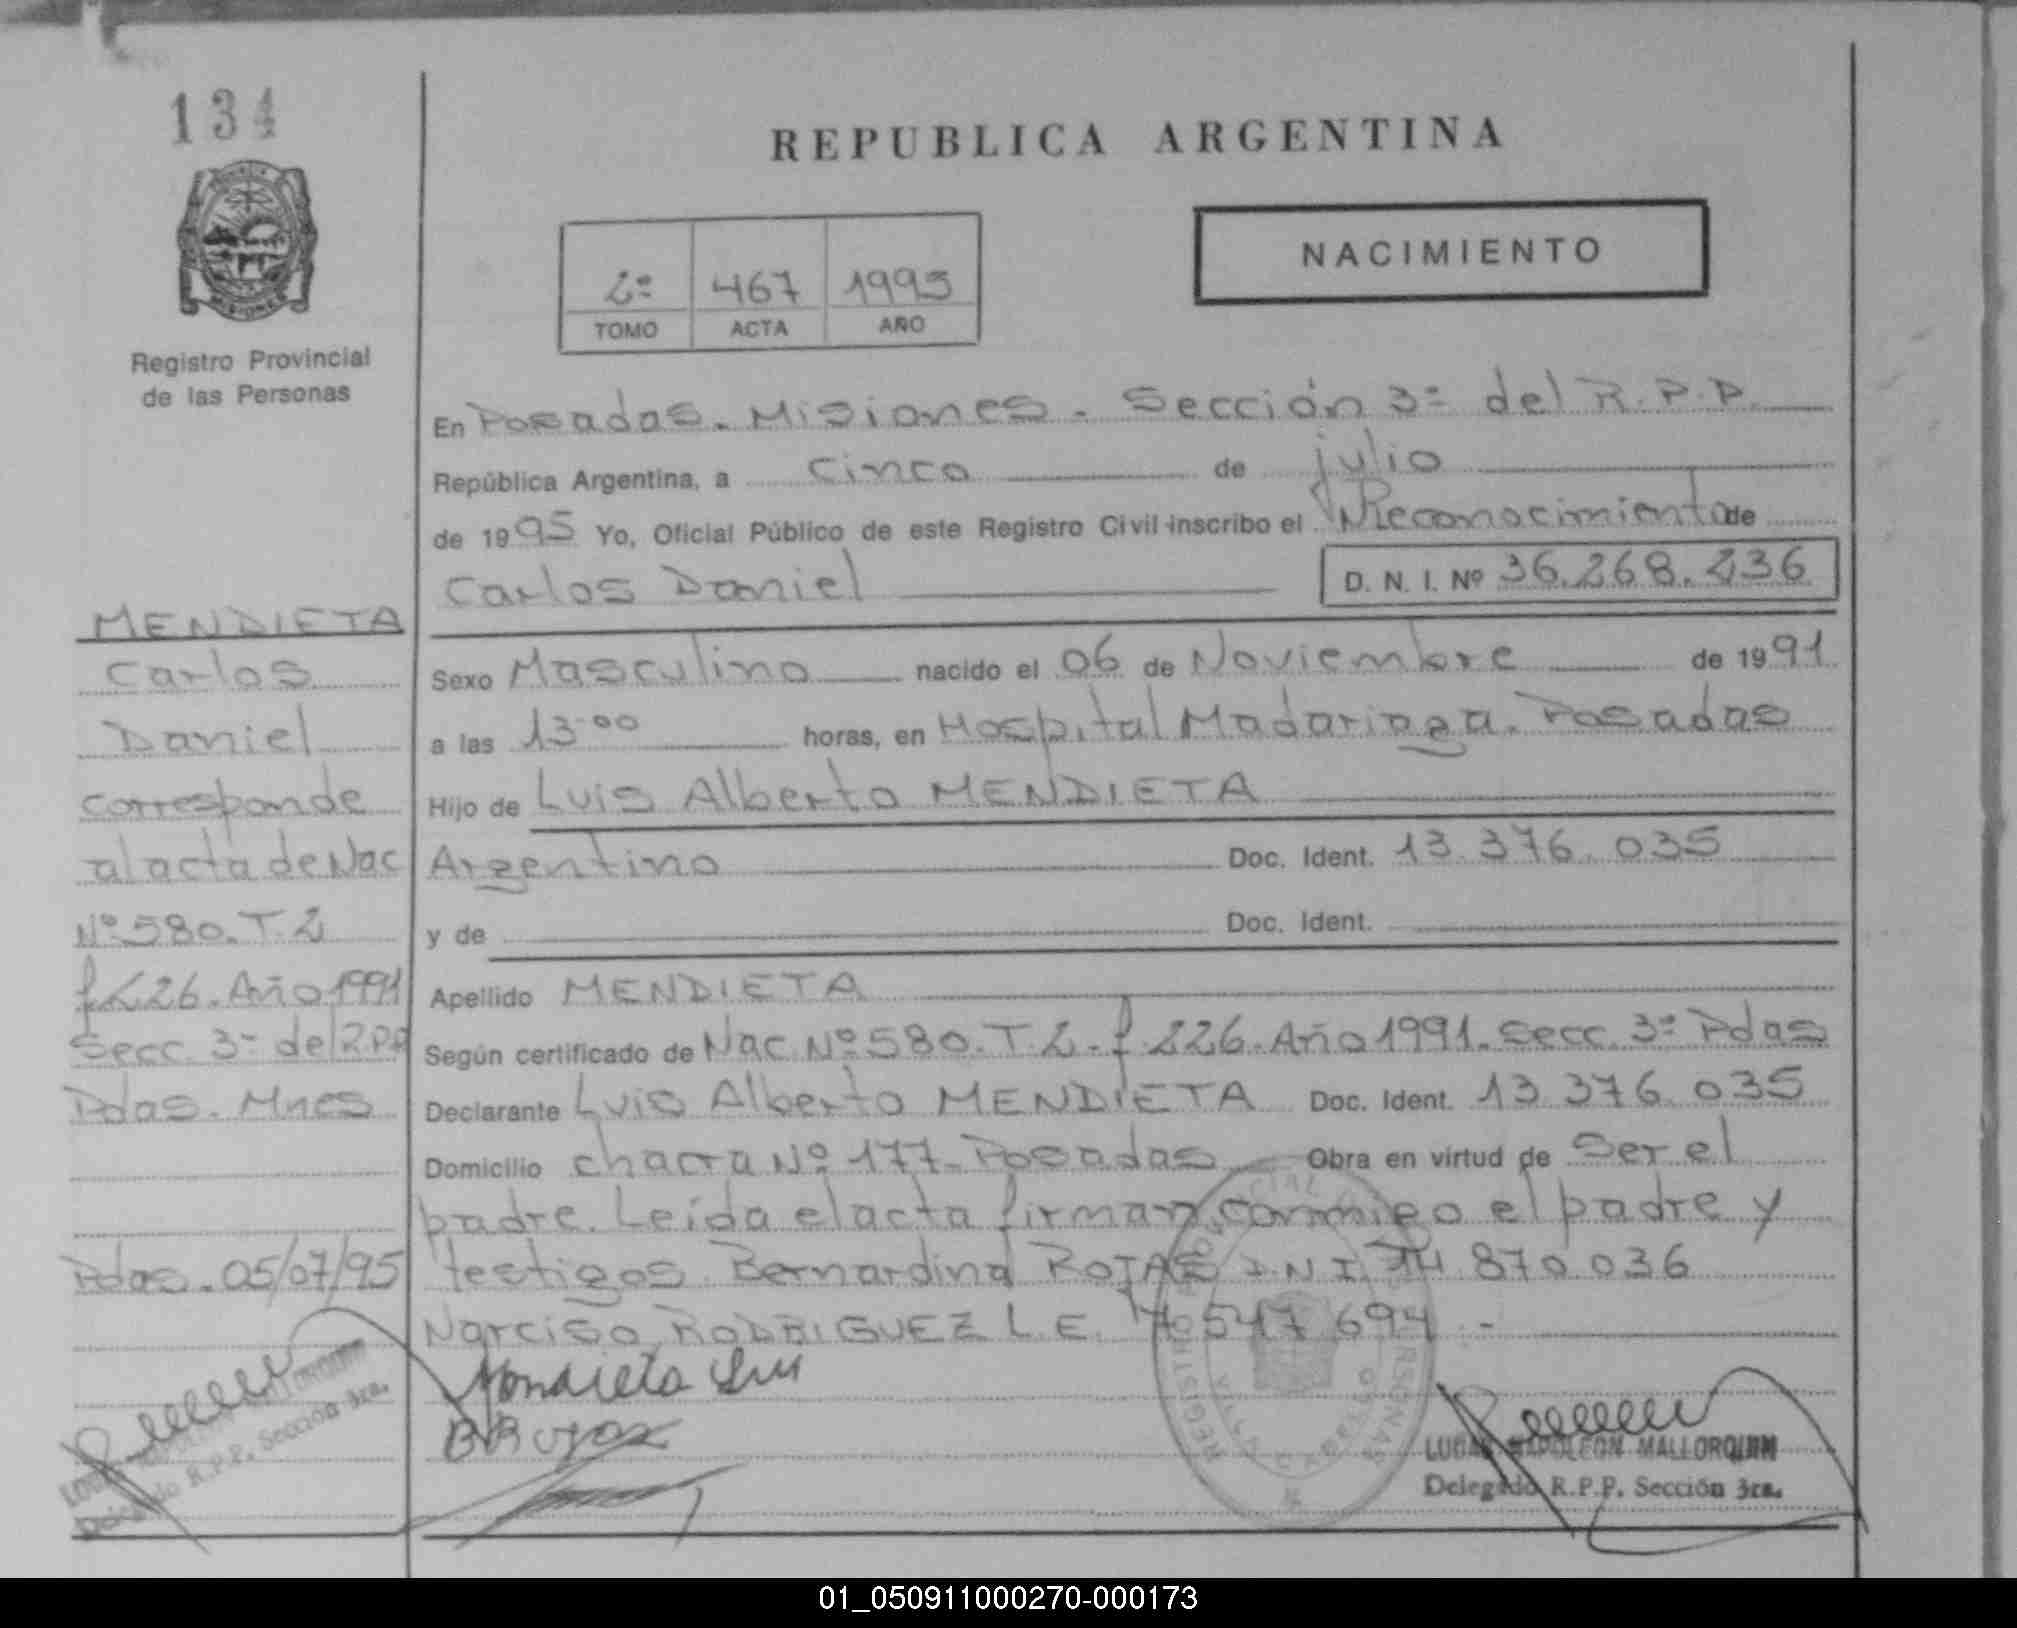 134
REPUBLICA ARGENTINA
NACIMIENTO
2º 467 1995
TOMO ACTA AÑO
MISIONES
Registro Provincial
de las Personas
En Posadas. Misiones. Sección 3ª del R.P.P.
República Argentina, a cinco de julio
de 1995 Yo, Oficial Público de este Registro Civil inscribo el Reconocimiento de
Carlos Daniel D. N. I. Nº 36.268.236
Sexo Masculino nacido el 06 de Noviembre de 1991
a las 13ºº horas, en Hospital Madariaga. Posadas
Hijo de Luis Alberto MENDIETA
Argentino Doc. Ident. 13.376.035
y de Doc. Ident.
Apellido MENDIETA
Según certificado de Nac. Nº 580. T. 2. f. 226. Año 1991. Secc. 3ª Pdas
Declarante Luis Alberto MENDIETA Doc. Ident. 13.376.035
Domicilio chacra Nº 177. Posadas Obra en virtud de Ser el
padre. Leída el acta firman conmigo el padre y
testigos. Bernardina ROJAS D.N.I. 870.036
Narciso RODRIGUEZ L.E. 547.694.-
Mendieta Luis
B Rojas
MALLORQUIN
Delegado R.P.P. Sección 3ra.
MENDIETA
Carlos
Daniel
corresponde
al acta de Nac
Nº 580. T. 2
f 226. Año 1991
Secc. 3ª del R.P.P
Pdas. Mnes
Pdas. 05/07/95
Delegado R.P.P. Sección 3ra.
01_050911000270-000173